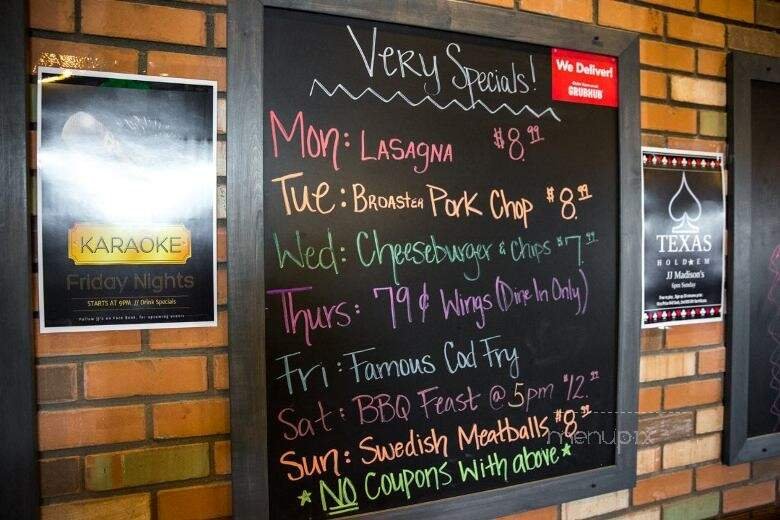 Very Specials!
We Deliver!
GRUBHUB
Mon: LASAGNA $8.99
Tue: BROASTER Pork Chop $8.99
Wed: Cheeseburger & Chips $7.99
Thurs: 79¢ Wings (Dine In Only)
Fri: Famous Cod Fry
Sat: BBQ Feast @ 5pm $12.99
Sun: Swedish Meatballs $8.99
*NO Coupons With above*
KARAOKE
Friday Nights
STARTS AT 9PM // Drink Specials
Follow JJ's on Face Book, for upcoming events
TEXAS
HOLD★EM
JJ Madison's
6pm Sunday
menupix